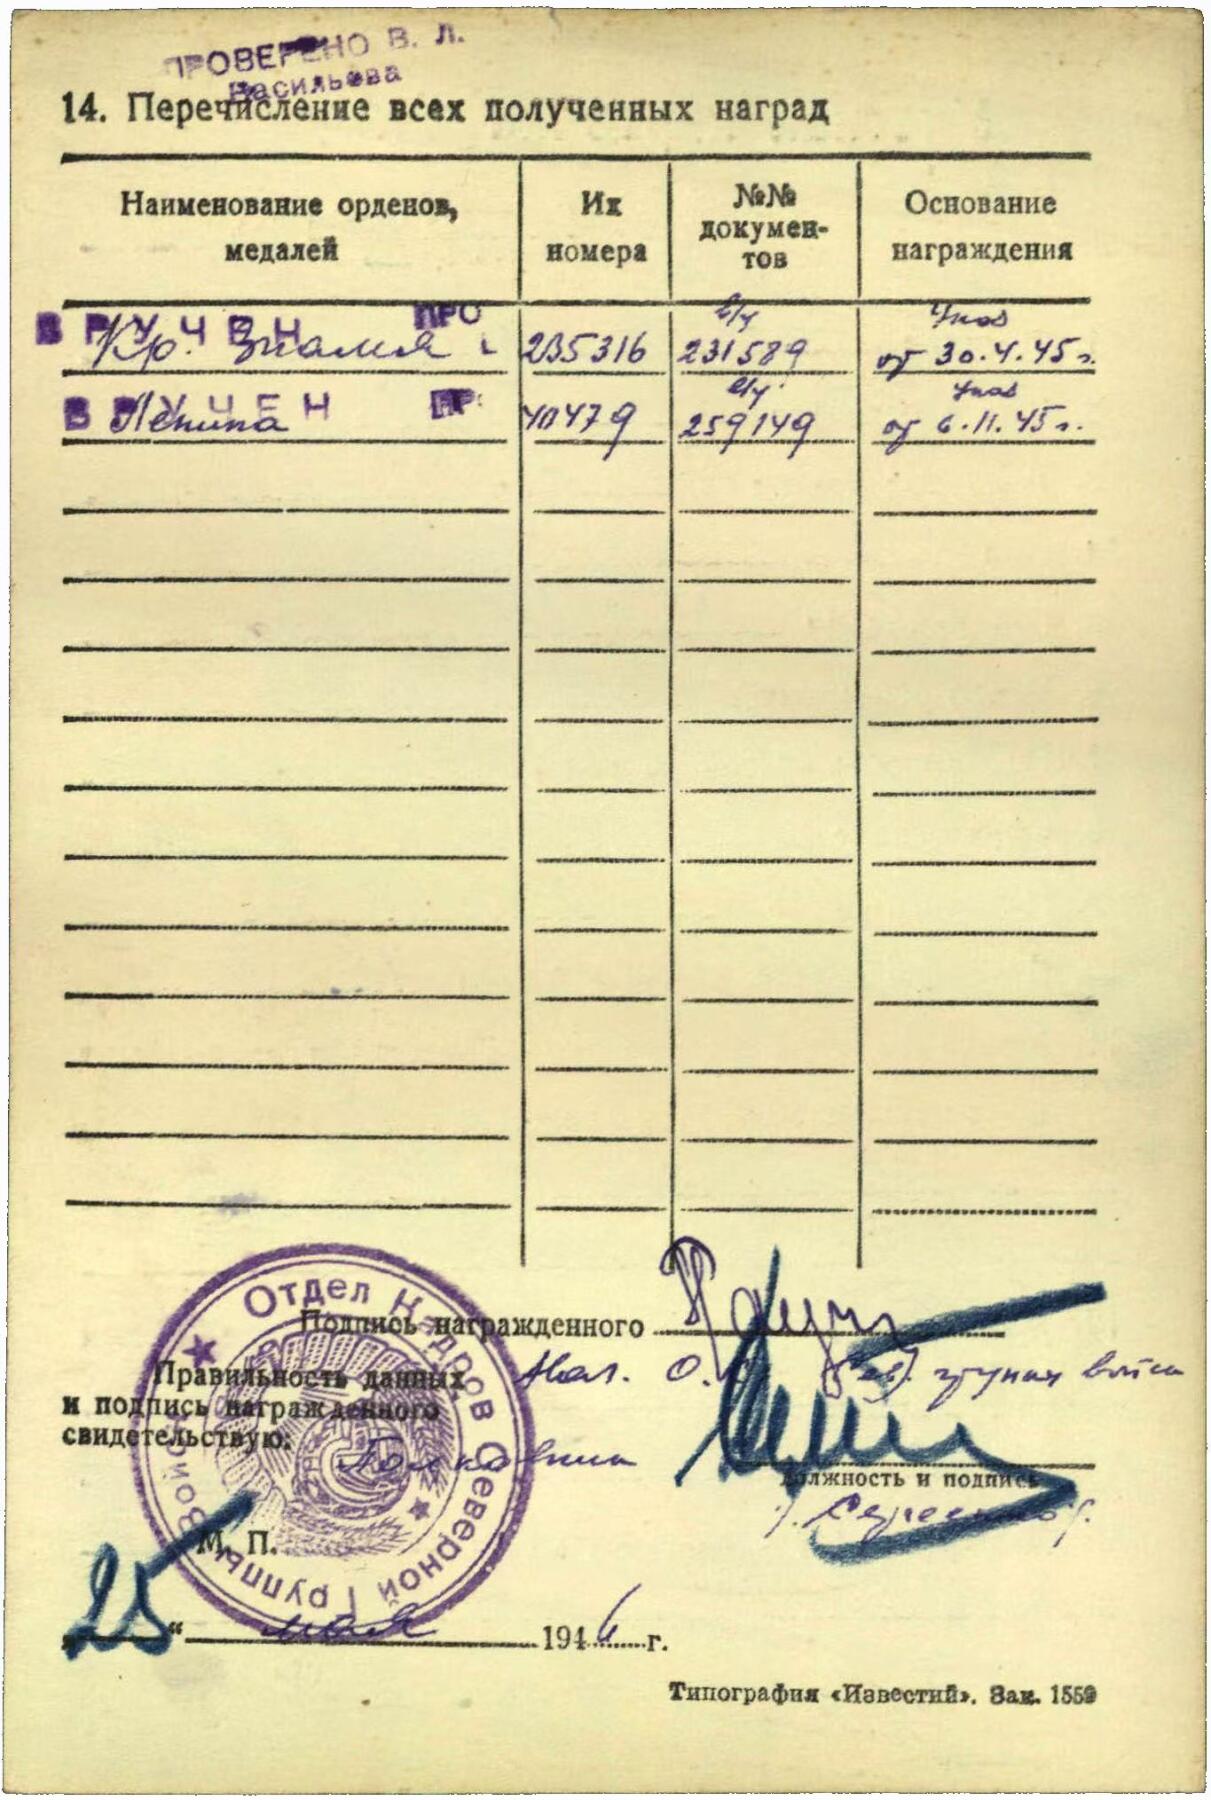 ПРОВЕРЕНО В. Л.
Васильева
14. Перечисление всех полученных наград
Наименование орденов, медалей
Их номера
№№ документов
Основание награждения
ВРУЧЕН ПРО
Кр. Знамя
235316
231589
Указ
от 30.4.45 г.
ВРУЧЕН ПР
Ленина
40479
259149
Указ
от 6.11.45 г.
Отдел Кадров Северной Группы Войск
Подпись награжденного
Правильность данных
и подпись награжденного
свидетельствую:
Нач. О.
группы войск
Полковник
Должность и подпись
М. П.
„25“ мая 1946 г.
Типография «Известий». Зак. 1559